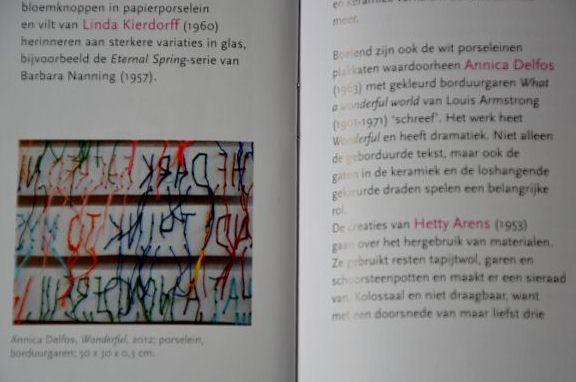 bloemknoppen in papierporselein
en vilt van Linda Kierdorff (1960)
herinneren aan sterkere variaties in glas,
bijvoorbeeld de Eternal Spring-serie van
Barbara Nanning (1957).
Annica Delfos, Wonderful, 2012; porselein,
borduurgaren; 30 x 30 x 0,3 cm.
meer.
Boeiend zijn ook de wit porseleinen
plakkaten waardoorheen Annica Delfos
(1963) met gekleurd borduurgaren What
a wonderful world van Louis Armstrong
(1901-1971) ‘schreef’. Het werk heet
Wonderful en heeft dramatiek. Niet alleen
de geborduurde tekst, maar ook de
gaten in de keramiek en de loshangende
gekleurde draden spelen een belangrijke
rol.
De creaties van Hetty Arens (1953)
gaan over het hergebruik van materialen.
Ze gebruikt resten tapijtwol, garen en
schoorsteenpotten en maakt er een sieraad
van. Kolossaal en niet draagbaar, want
met een doorsnede van maar liefst drie